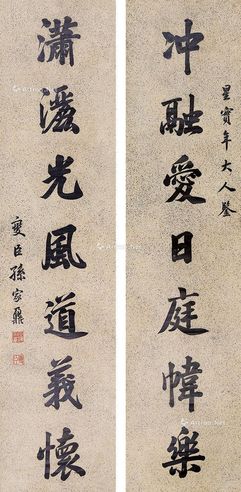 星實年大人鑒
冲融愛日庭幃樂
瀟灑光風道義懷
燮臣孫家鼐